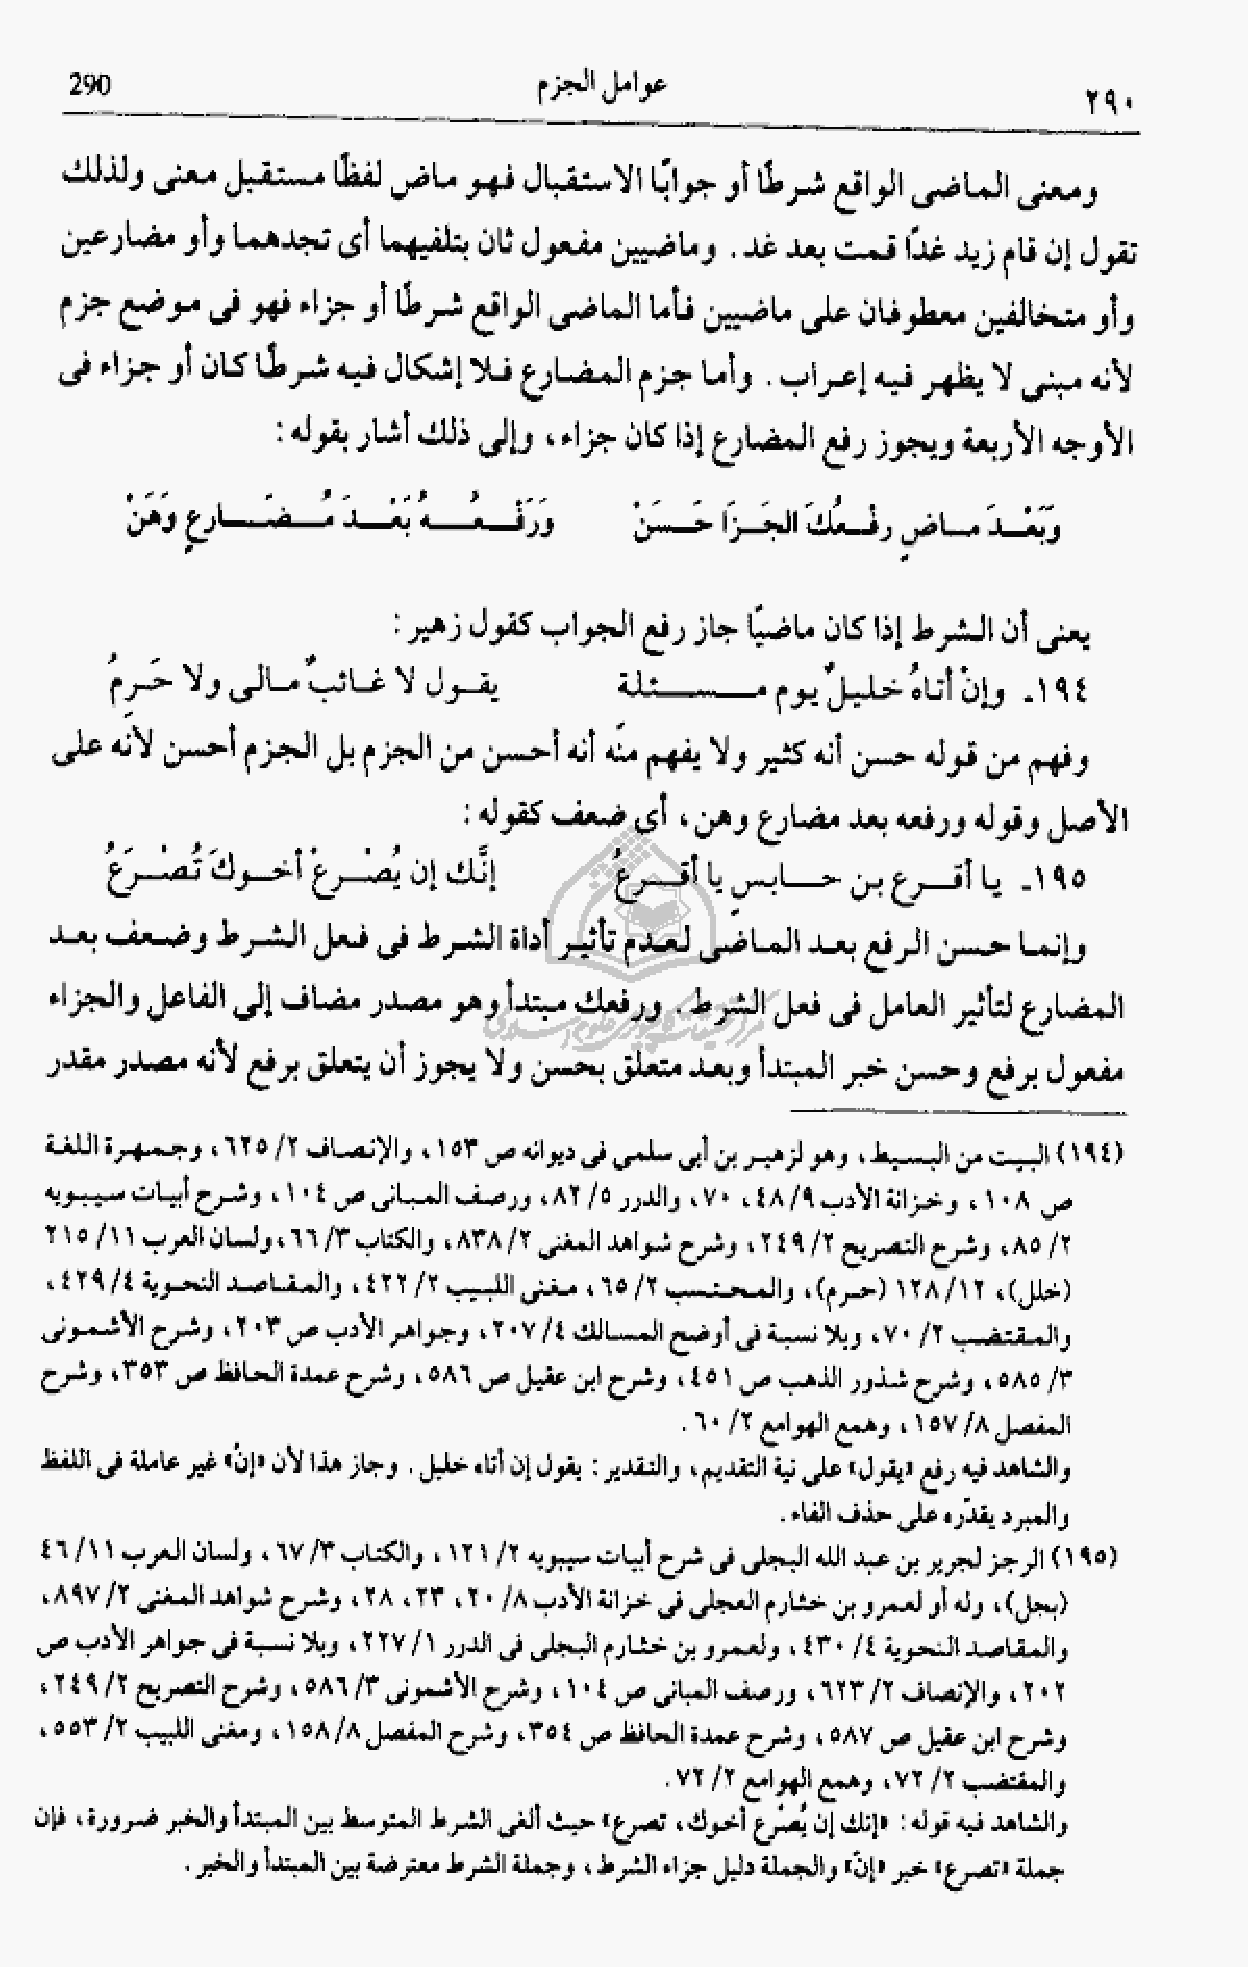 290 عوامل الجزم ٢٩٠
ومعنى الماضى الواقع شرطًا أو جوابًا الاستقبال فهو ماض لفظًا مستقبل معنى ولذلك
تقول إن قام زيد غدًا قمت بعد غد. وماضيين مفعول ثان بتلفيهما أى تجدهما وأو مضارعين
وأو متخالفين معطوفان على ماضيين فأما الماضى الواقع شرطًا أو جزاء فهو فى موضع جزم
لأنه مبنى لا يظهر فيه إعراب. وأما جزم المضارع فلا إشكال فيه شرطًا كان أو جزاء فى
الأوجه الأربعة ويجوز رفع المضارع إذا كان جزاء، وإلى ذلك أشار بقوله:
وَبَعْدَ مَاضٍ رفْعُكَ الجَزَا حَسَنْ وَرَفْعُهُ بَعْدَ مُضَارِعٍ وَهَنْ
يعنى أن الشرط إذا كان ماضيًا جاز رفع الجواب كقول زهير:
١٩٤ـ وإنْ أتاهُ خليلٌ يوم مسئلة يقول لا غائبٌ مالى ولا حَرِمُ
وفهم من قوله حسن أنه كثير ولا يفهم منه أنه أحسن من الجزم بل الجزم أحسن لأنه على
الأصل وقوله ورفعه بعد مضارع وهن، أى ضعف كقوله:
١٩٥ـ يا أقرع بن حابسٍ يا أقرعُ إنَّك إن يُصْرعْ أخوكَ تُصْرَعُ
وإنما حسن الرفع بعد الماضى لعدم تأثير أداة الشرط فى فعل الشرط وضعف بعد
المضارع لتأثير العامل فى فعل الشرط. ورفعك مبتدأ وهو مصدر مضاف إلى الفاعل والجزاء
مفعول برفع وحسن خبر المبتدأ وبعد متعلق بحسن ولا يجوز أن يتعلق برفع لأنه مصدر مقدر
(١٩٤) البيت من البسيط، وهو لزهير بن أبى سلمى فى ديوانه ص ١٥٣، والإنصاف ٢/ ٦٢٥، وجمهرة اللغة
ص ١٠٨، وخزانة الأدب ٩/ ٤٨، ٧٠، والدرر ٥/ ٨٢، ورصف المبانى ص ١٠٤، وشرح أبيات سيبويه
٢/ ٨٥، وشرح التصريح ٢/ ٢٤٩، وشرح شواهد المغنى ٢/ ٨٣٨، والكتاب ٣/ ٦٦، ولسان العرب ١١/ ٢١٥
(خلل)، ١٢/ ١٢٨ (حرم)، والمحتسب ٢/ ٦٥، مغنى اللبيب ٢/ ٤٢٢، والمقاصد النحوية ٤/ ٤٢٩،
والمقتضب ٢/ ٧٠، وبلا نسبة فى أوضح المسالك ٤/ ٢٠٧، وجواهر الأدب ص ٢٠٣، وشرح الأشمونى
٣/ ٥٨٥، وشرح شذور الذهب ص ٤٥١، وشرح ابن عقيل ص ٥٨٦، وشرح عمدة الحافظ ص ٣٥٣، وشرح
المفصل ٨/ ١٥٧، وهمع الهوامع ٢/ ٦٠.
والشاهد فيه رفع «يقول» على نية التقديم، والتقدير: يقول إن أتاه خليل. وجاز هذا لأن «إنْ» غير عاملة فى اللفظ
والمبرد يقدّره على حذف الفاء.
(١٩٥) الرجز لجرير بن عبد الله البجلى فى شرح أبيات سيبويه ٢/ ١٢١، والكتاب ٣/ ٦٧، ولسان العرب ١١/ ٤٦
(بجل)، وله أو لعمرو بن خثارم العجلى فى خزانة الأدب ٨/ ٢٠، ٢٣، ٢٨، وشرح شواهد المغنى ٢/ ٨٩٧،
والمقاصد النحوية ٤/ ٤٣٠، ولعمرو بن خثارم البجلى فى الدرر ١/ ٢٢٧، وبلا نسبة فى جواهر الأدب ص
٢٠٢، والإنصاف ٢/ ٦٢٣، ورصف المبانى ص ١٠٤، وشرح الأشمونى ٣/ ٥٨٦، وشرح التصريح ٢/ ٢٤٩،
وشرح ابن عقيل ص ٥٨٧، وشرح عمدة الحافظ ص ٣٥٤، وشرح المفصل ٨/ ١٥٨، ومغنى اللبيب ٢/ ٥٥٣،
والمقتضب ٢/ ٧٢، وهمع الهوامع ٢/ ٧٢.
والشاهد فيه قوله: «إنك إن يُصْرع أخوك، تصرع» حيث ألغى الشرط المتوسط بين المبتدأ والخبر ضرورة، فإن
جملة «تصرع» خبر «إنّ» والجملة دليل جزاء الشرط، وجملة الشرط معترضة بين المبتدأ والخبر.